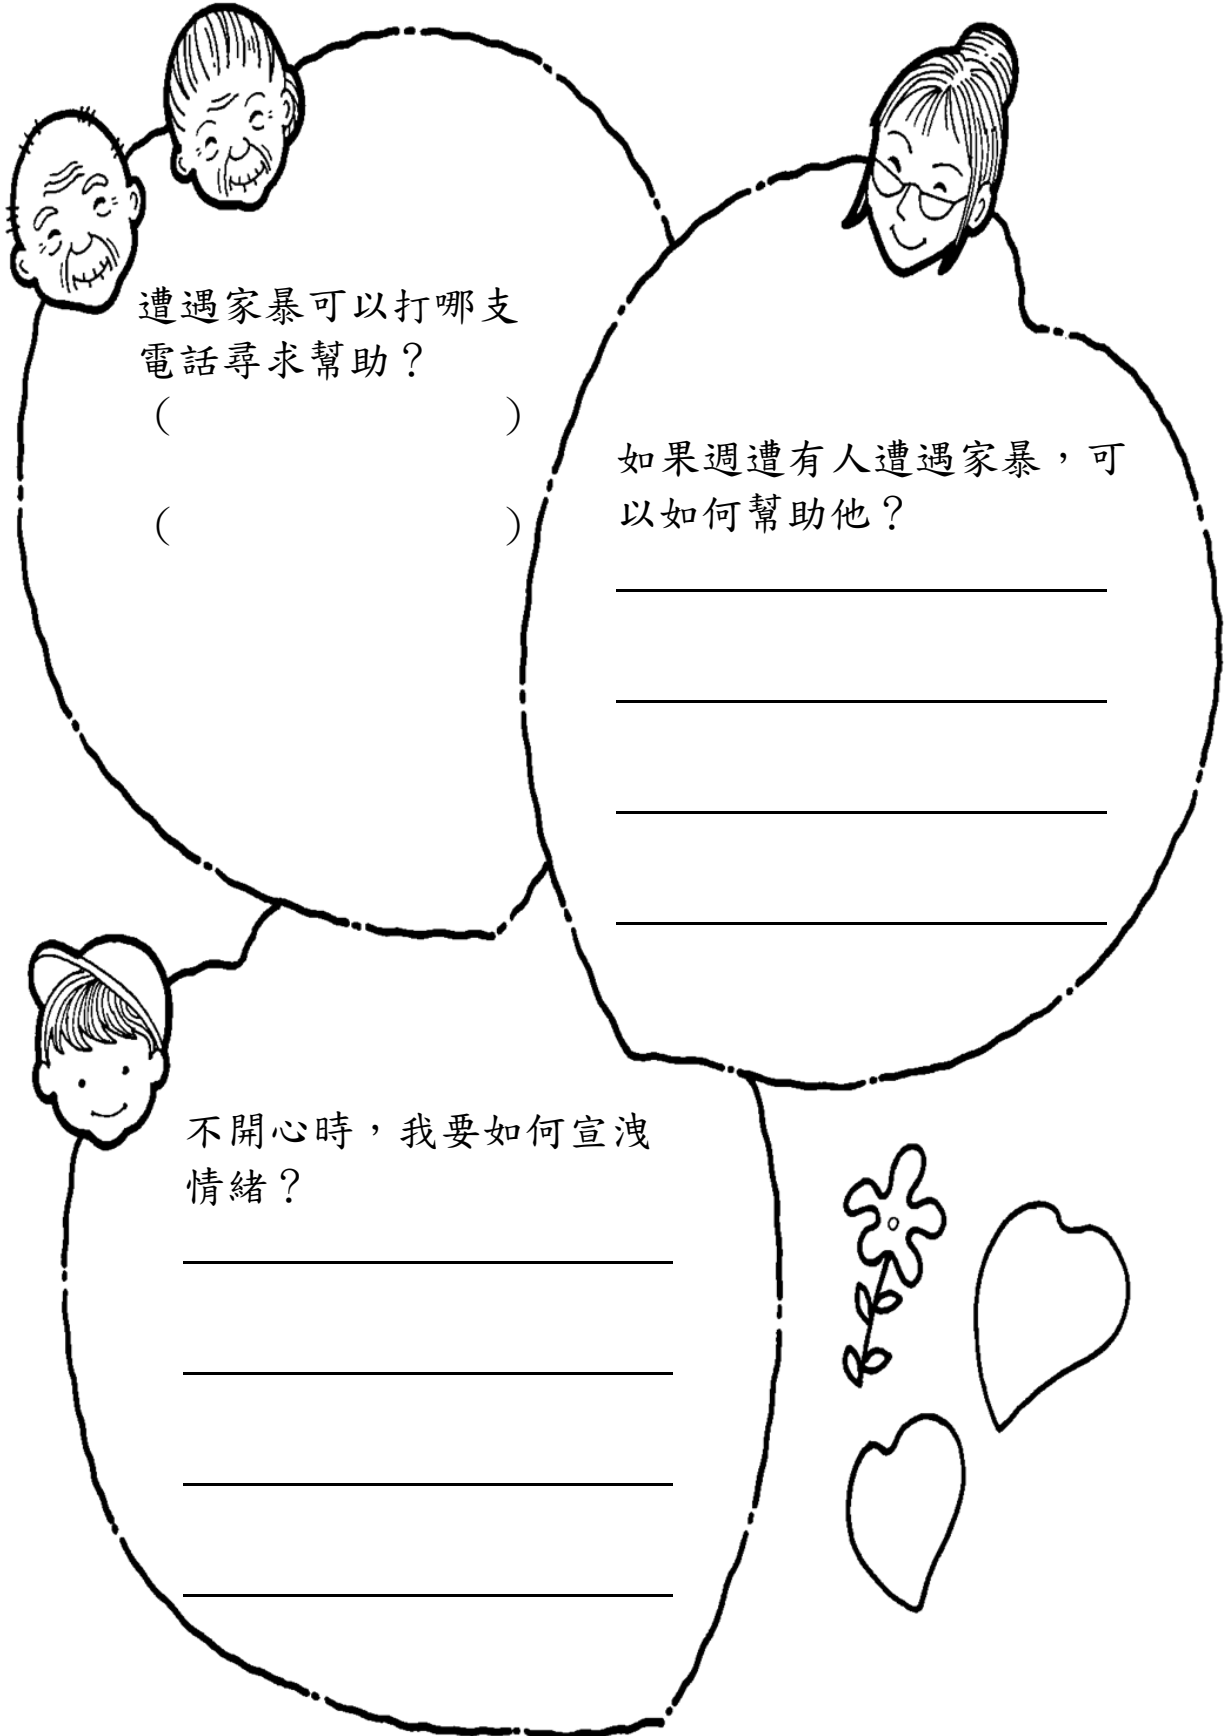 遭遇家暴可以打哪支
電話尋求幫助？
（　　　　　　　　）
（　　　　　　　　）
如果週遭有人遭遇家暴，可
以如何幫助他？
不開心時，我要如何宣洩
情緒？